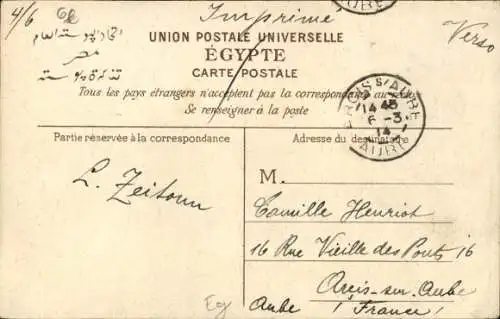 4/6
Imprimé
Verso
UNION POSTALE UNIVERSELLE
ÉGYPTE
CARTE POSTALE
Tous les pays étrangers n'acceptent pas la correspondance au recto
Se renseigner à la poste
ARCIS S/ AUBE
14 45
6 - 3
14
AUBE
Partie réservée à la correspondance
Adresse du destinataire
L. Zeitoun
M.
Camille Henriot
16 Rue Vieille des Ponts 16
Arcis-sur-Aube
Aube (France)
Eg